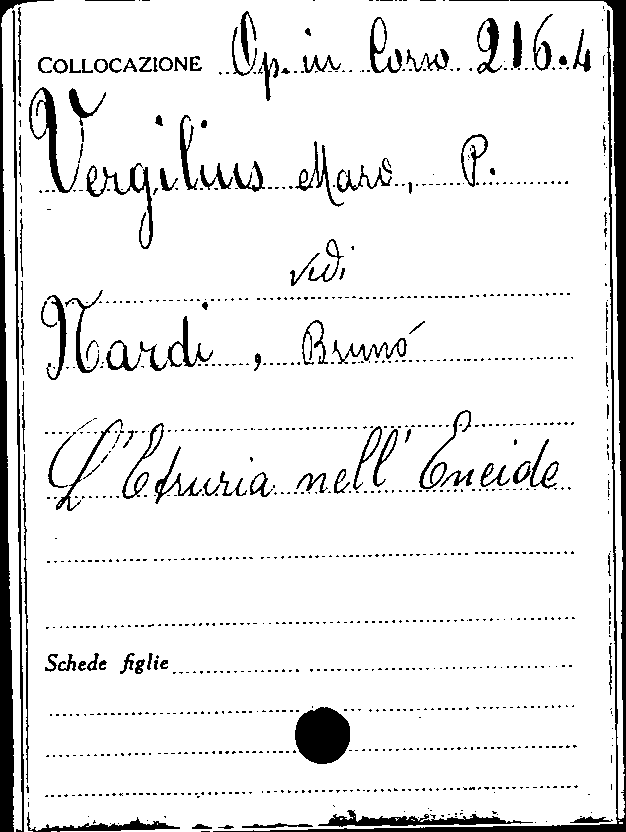 COLLOCAZIONE Op. in Corso 216.4
Vergilius Maro, P.
vedi
Nardi, Bruno
L'Etruria nell'Eneide
Schede figlie